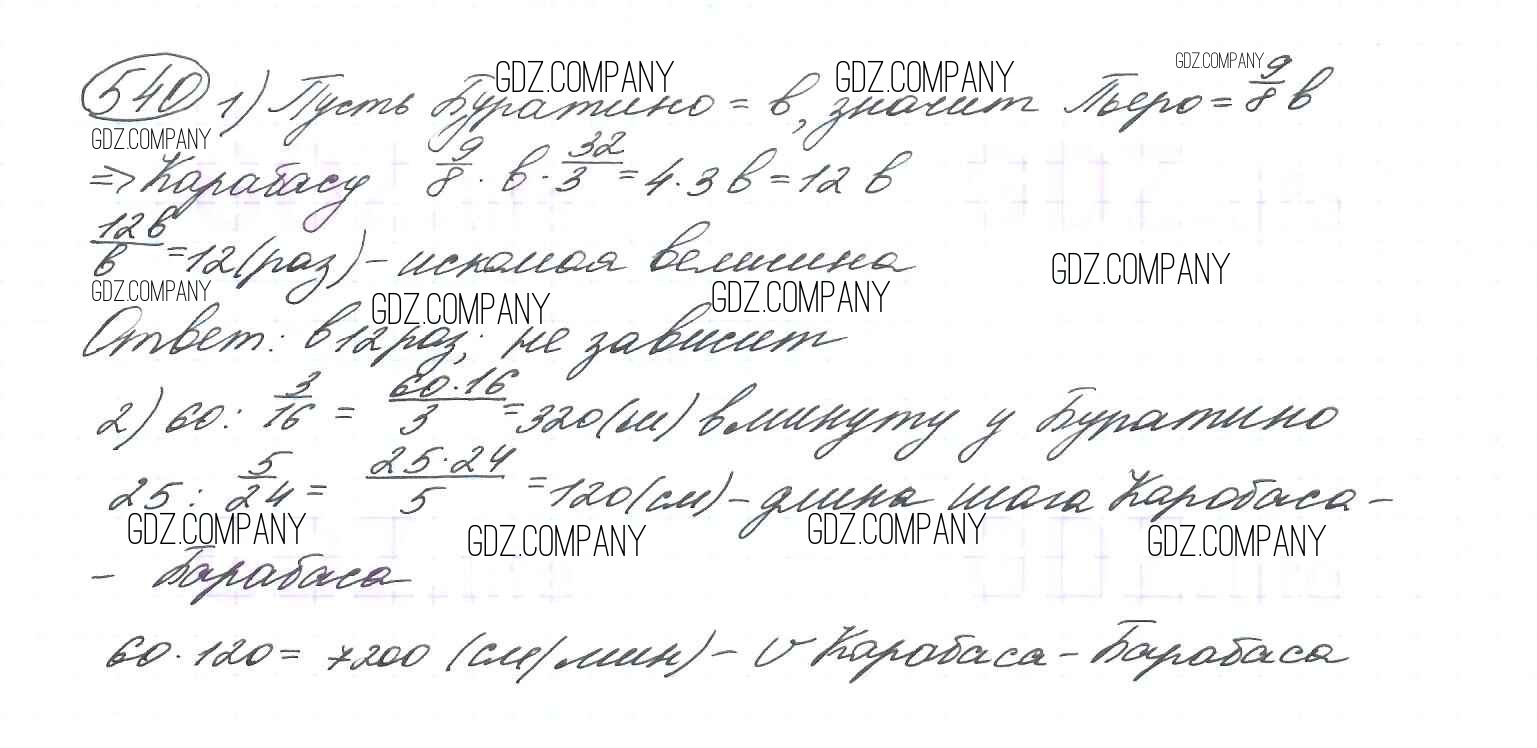 540 1) Пусть Буратино = в, значит Пьеро = 9/8 в
=> Карабасу 9/8 · в · 32/3 = 4 · 3 в = 12 в
12в/в = 12 (раз) – искомая величина
Ответ: в 12 раз; не зависит
2) 60 : 3/16 = 60·16/3 = 320 (ш) в минуту у Буратино
25 : 5/24 = 25·24/5 = 120 (см) – длина шага Карабаса –
– Барабаса
60 · 120 = 7200 (см/мин) – v Карабаса – Барабаса
GDZ.COMPANY
GDZ.COMPANY
GDZ.COMPANY
GDZ.COMPANY
GDZ.COMPANY
GDZ.COMPANY
GDZ.COMPANY
GDZ.COMPANY
GDZ.COMPANY
GDZ.COMPANY
GDZ.COMPANY
GDZ.COMPANY